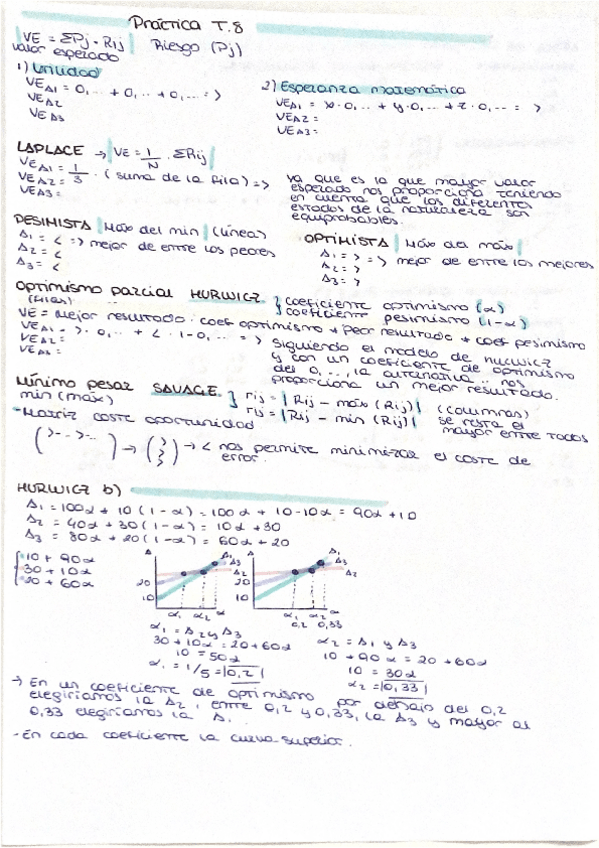 Práctica T.8
VE = ΣPj · Rij Riesgo (Pj)
valor esperado
1) Utilidad
VE A1 = 0,... + 0,.. + 0,... = >
VE A2
VE A3
2) Esperanza matemática
VE A1 = x·0,... + y·0,... + z·0,.. = >
VE A2 =
VE A3 =
LAPLACE → VE = 1/N · ΣRij
VE A1 = 1/3 · (suma de la fila) => >
VE A2 =
VE A3 =
ya que es la que mayor valor
esperado nos proporciona teniendo
en cuenta que los diferentes
estados de la naturaleza son
equiprobables.
PESIMISTA | Máx del min | (líneas)
A1 = < => mejor de entre los peores
A2 = <
A3 = <
OPTIMISTA | Máx del máx |
A1 = > => mejor de entre los mejores
A2 = >
A3 = >
Optimismo parcial HURWICZ } coeficiente optimismo (α)
(filas) } coeficiente pesimismo (1-α)
VE = Mejor resultado · coef optimismo + peor resultado · coef pesimismo
VE A1 = > · 0,.. + < · 1-0,... = >
VE A2 =
VE A3 =
Siguiendo el modelo de Hurwicz
y con un coeficiente de optimismo
del 0,..., la alternativa .. nos
proporciona un mejor resultado.
Mínimo pesar SAVAGE } rij = |Rij - máx (Rij)| (columnas)
min (máx) rij = |Rij - min (Rij)| se resta el
mayor entre todos
- Matriz coste oportunidad
(>--> >--) → (> > >) → < nos permite minimizar el coste de
error.
HURWICZ b)
A1 = 100α + 10 (1-α) = 100α + 10 - 10α = 90α + 10
A2 = 40α + 30 (1-α) = 10α + 30
A3 = 80α + 20 (1-α) = 60α + 20
10 + 90α
30 + 10α
20 + 60α
A A1 A3 A2
20
10
α1 α2 α
A A1 A3 A2
20
10
α1 α2 α
0,2 0,33
α1 = A2 y A3
30 + 10α = 20 + 60α
10 = 50α
α1 = 1/5 = |0,2|
α2 = A1 y A3
10 + 90α = 20 + 60α
10 = 30α
α2 = |0,33|
→ En un coeficiente de optimismo por debajo del 0,2
elegiríamos la A2, entre 0,2 y 0,33, la A3 y mayor al
0,33 elegiríamos la A1.
- En cada coeficiente la curva superior.